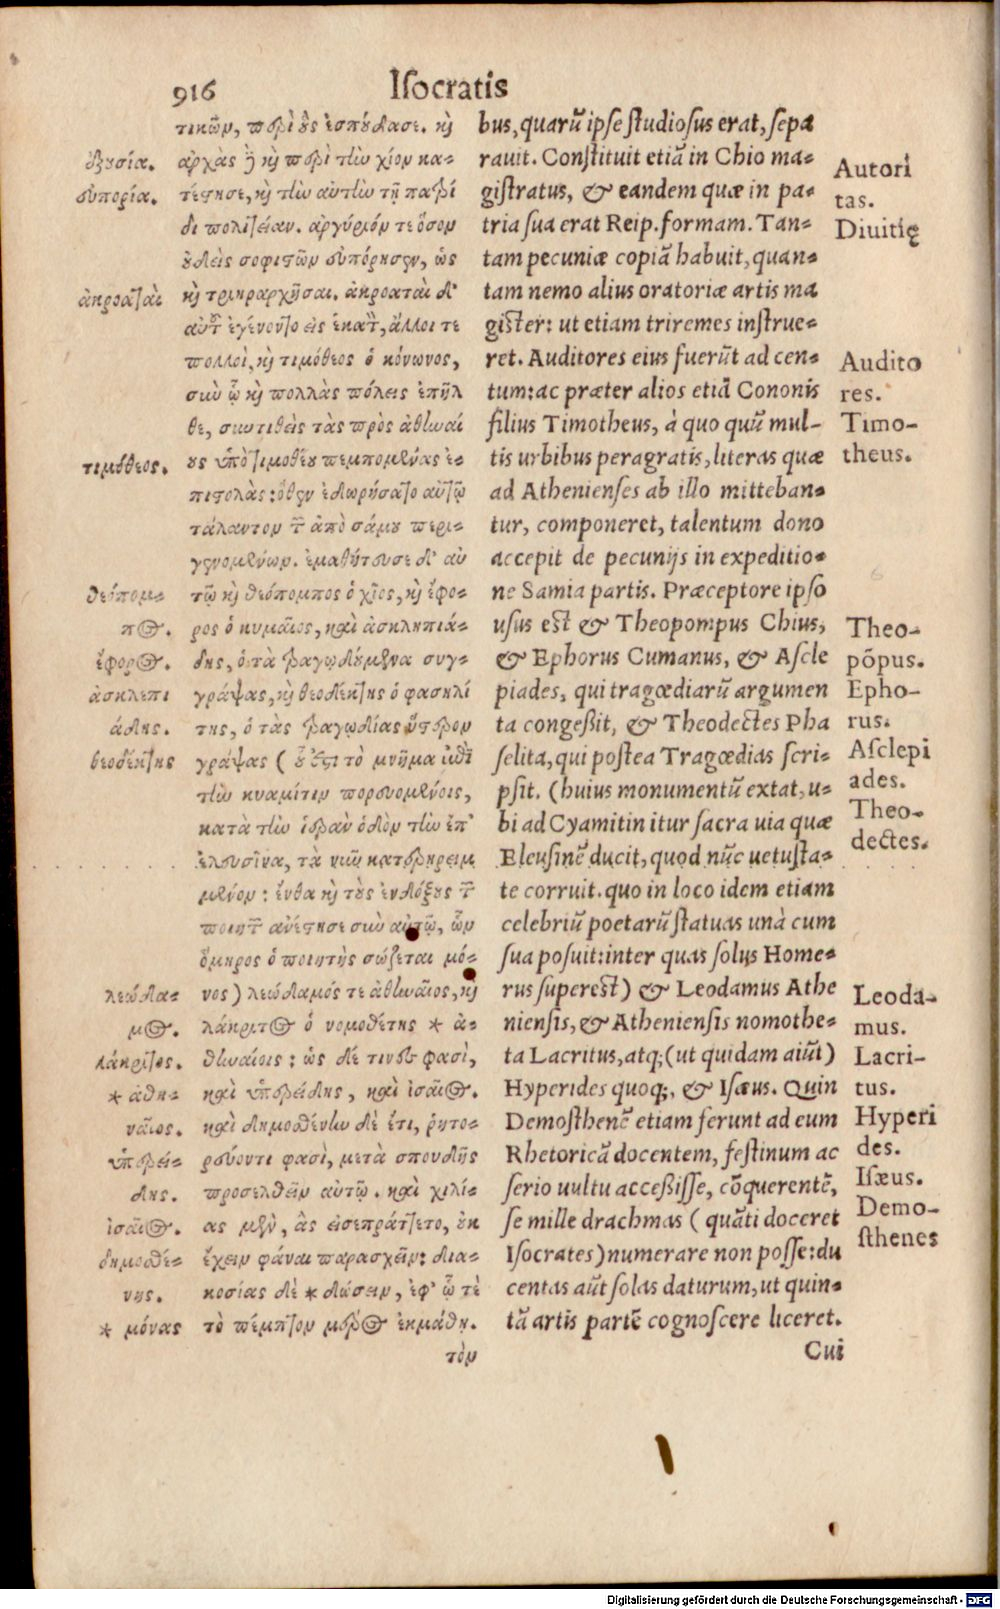 916 Iſocratis
τικῶν, περὶ οὓς ἐσπούδασε. καὶ
ἀρχὰς δὲ καὶ περὶ τὴν χίον κα-
τέστησε, καὶ τὴν αὐτὴν τῇ πατρί
δι πολιτείαν. ἀργύριόν τε ὅσον
οὐδεὶς σοφιστῶν εὐπόρησεν, ὡς
καὶ τριηραρχῆσαι. ἀκροαταὶ δ'
αὐτοῦ ἐγένοντο εἰς ἑκατὸν, ἄλλοι τε
πολλοὶ, καὶ τιμόθεος ὁ κόνωνος,
σὺν ᾧ καὶ πολλὰς πόλεις ἐπῆλ
θε, συντιθεὶς τὰς πρὸς ἀθηναί
ους ὑπὸ τιμοθέου πεμπομένας ἐ-
πιστολὰς: ὅθεν ἐδωρήσατο αὐτῷ
τάλαντον τῶν ἀπὸ σάμου περι-
γενομένων. ἐμαθήτευσε δ' αὐ
τῷ καὶ θεόπομπος ὁ χῖος, καὶ ἔφο-
ρος ὁ κυμαῖος, καὶ ἀσκληπιά-
δης, ὁ τὰ τραγῳδούμενα συγ-
γράψας, καὶ θεοδέκτης ὁ φασηλί
της, ὁ τὰς τραγῳδίας ὕστερον
γράψας ( οὗ ἐστι τὸ μνῆμα ἐπὶ
τὴν κυαμίτιν πορευομένοις,
κατὰ τὴν ἱερὰν ὁδὸν τὴν ἐπ'
ἐλευσῖνα, τὰ νῦν κατερηρειμ
μένον: ἔνθα καὶ τοὺς ἐνδόξους τῶν
ποιητῶν ἀνέστησε σὺν αὐτῷ, ὧν
ὅμηρος ὁ ποιητὴς σώζεται μό-
νος) λεώδαμός τε ἀθηναῖος, καὶ
λάκριτος ὁ νομοθέτης * ἀ-
θηναίοις: ὡς δέ τινές φασὶ,
καὶ ὑπερείδης, καὶ ἰσαῖος.
καὶ δημοσθένην δὲ ἔτι, ῥητο-
ρεύοντι φασὶ, μετὰ σπουδῆς
προσελθεῖν αὐτῷ. καὶ χιλί-
ας μὲν, ἃς εἰσεπράττετο, οὐκ
ἔχειν φάναι παρασχεῖν: δια-
κοσίας δὲ * δώσειν, ἐφ' ᾧ τὲ
τὸ πέμπτον μέρος ἐκμάθῃ.
τὸν
ἐξουσία.
εὐπορία.
ἀκροαταὶ
τιμόθεος.
θεόπομ-
πος.
ἔφορος.
ἀσκληπι
άδης.
θεοδέκτης
λεώδα-
μος.
λάκριτος.
* ἀθη-
ναῖος.
ὑπερεί-
δης.
ἰσαῖος.
δημοσθέ-
νης.
* μόνας
bus, quarū ipſe ſtudioſus erat, ſepa
rauit. Conſtituit etiā in Chio ma-
giſtratus, & eandem quæ in pa-
tria ſua erat Reip. formam. Tan-
tam pecuniæ copiā habuit, quan-
tam nemo alius oratoriæ artis ma
giſter: ut etiam triremes inſtrue-
ret. Auditores eius fuerūt ad cen-
tum: ac præter alios etiā Cononis
filius Timotheus, à quo quū mul-
tis urbibus peragratis, literas quæ
ad Athenienſes ab illo mitteban-
tur, componeret, talentum dono
accepit de pecunijs in expeditio-
ne Samia partis. Præceptore ipſo
uſus eſt & Theopompus Chius,
& Ephorus Cumanus, & Aſcle
piades, qui tragœdiarū argumen
ta congeßit, & Theodectes Pha
ſelita, qui poſtea Tragœdias ſcri-
pſit. (huius monumentū extat, u-
bi ad Cyamitin itur ſacra uia quæ
Eleuſinē ducit, quod nūc uetuſta-
te corruit. quo in loco idem etiam
celebriū poetarū ſtatuas unà cum
ſua poſuit: inter quas ſolus Home-
rus ſupereſt) & Leodamus Athe
nienſis, & Athenienſis nomothe-
ta Lacritus, atq; (ut quidam aiūt)
Hyperides quoq;, & Iſæus. Quin
Demoſthenē etiam ferunt ad eum
Rhetoricā docentem, feſtinum ac
ſerio uultu acceßiſſe, cōquerentē,
ſe mille drachmas ( quāti doceret
Iſocrates) numerare non poſſe: du
centas aūt ſolas daturum, ut quin-
tā artis partē cognoſcere liceret.
Cui
Autori
tas.
Diuitię
Audito
res.
Timo-
theus.
Theo-
põpus.
Epho-
rus.
Aſclepi
ades.
Theo-
dectes.
Leoda-
mus.
Lacri-
tus.
Hyperi
des.
Iſæus.
Demo-
ſthenes
Digitalisierung gefördert durch die Deutsche Forschungsgemeinschaft - DFG